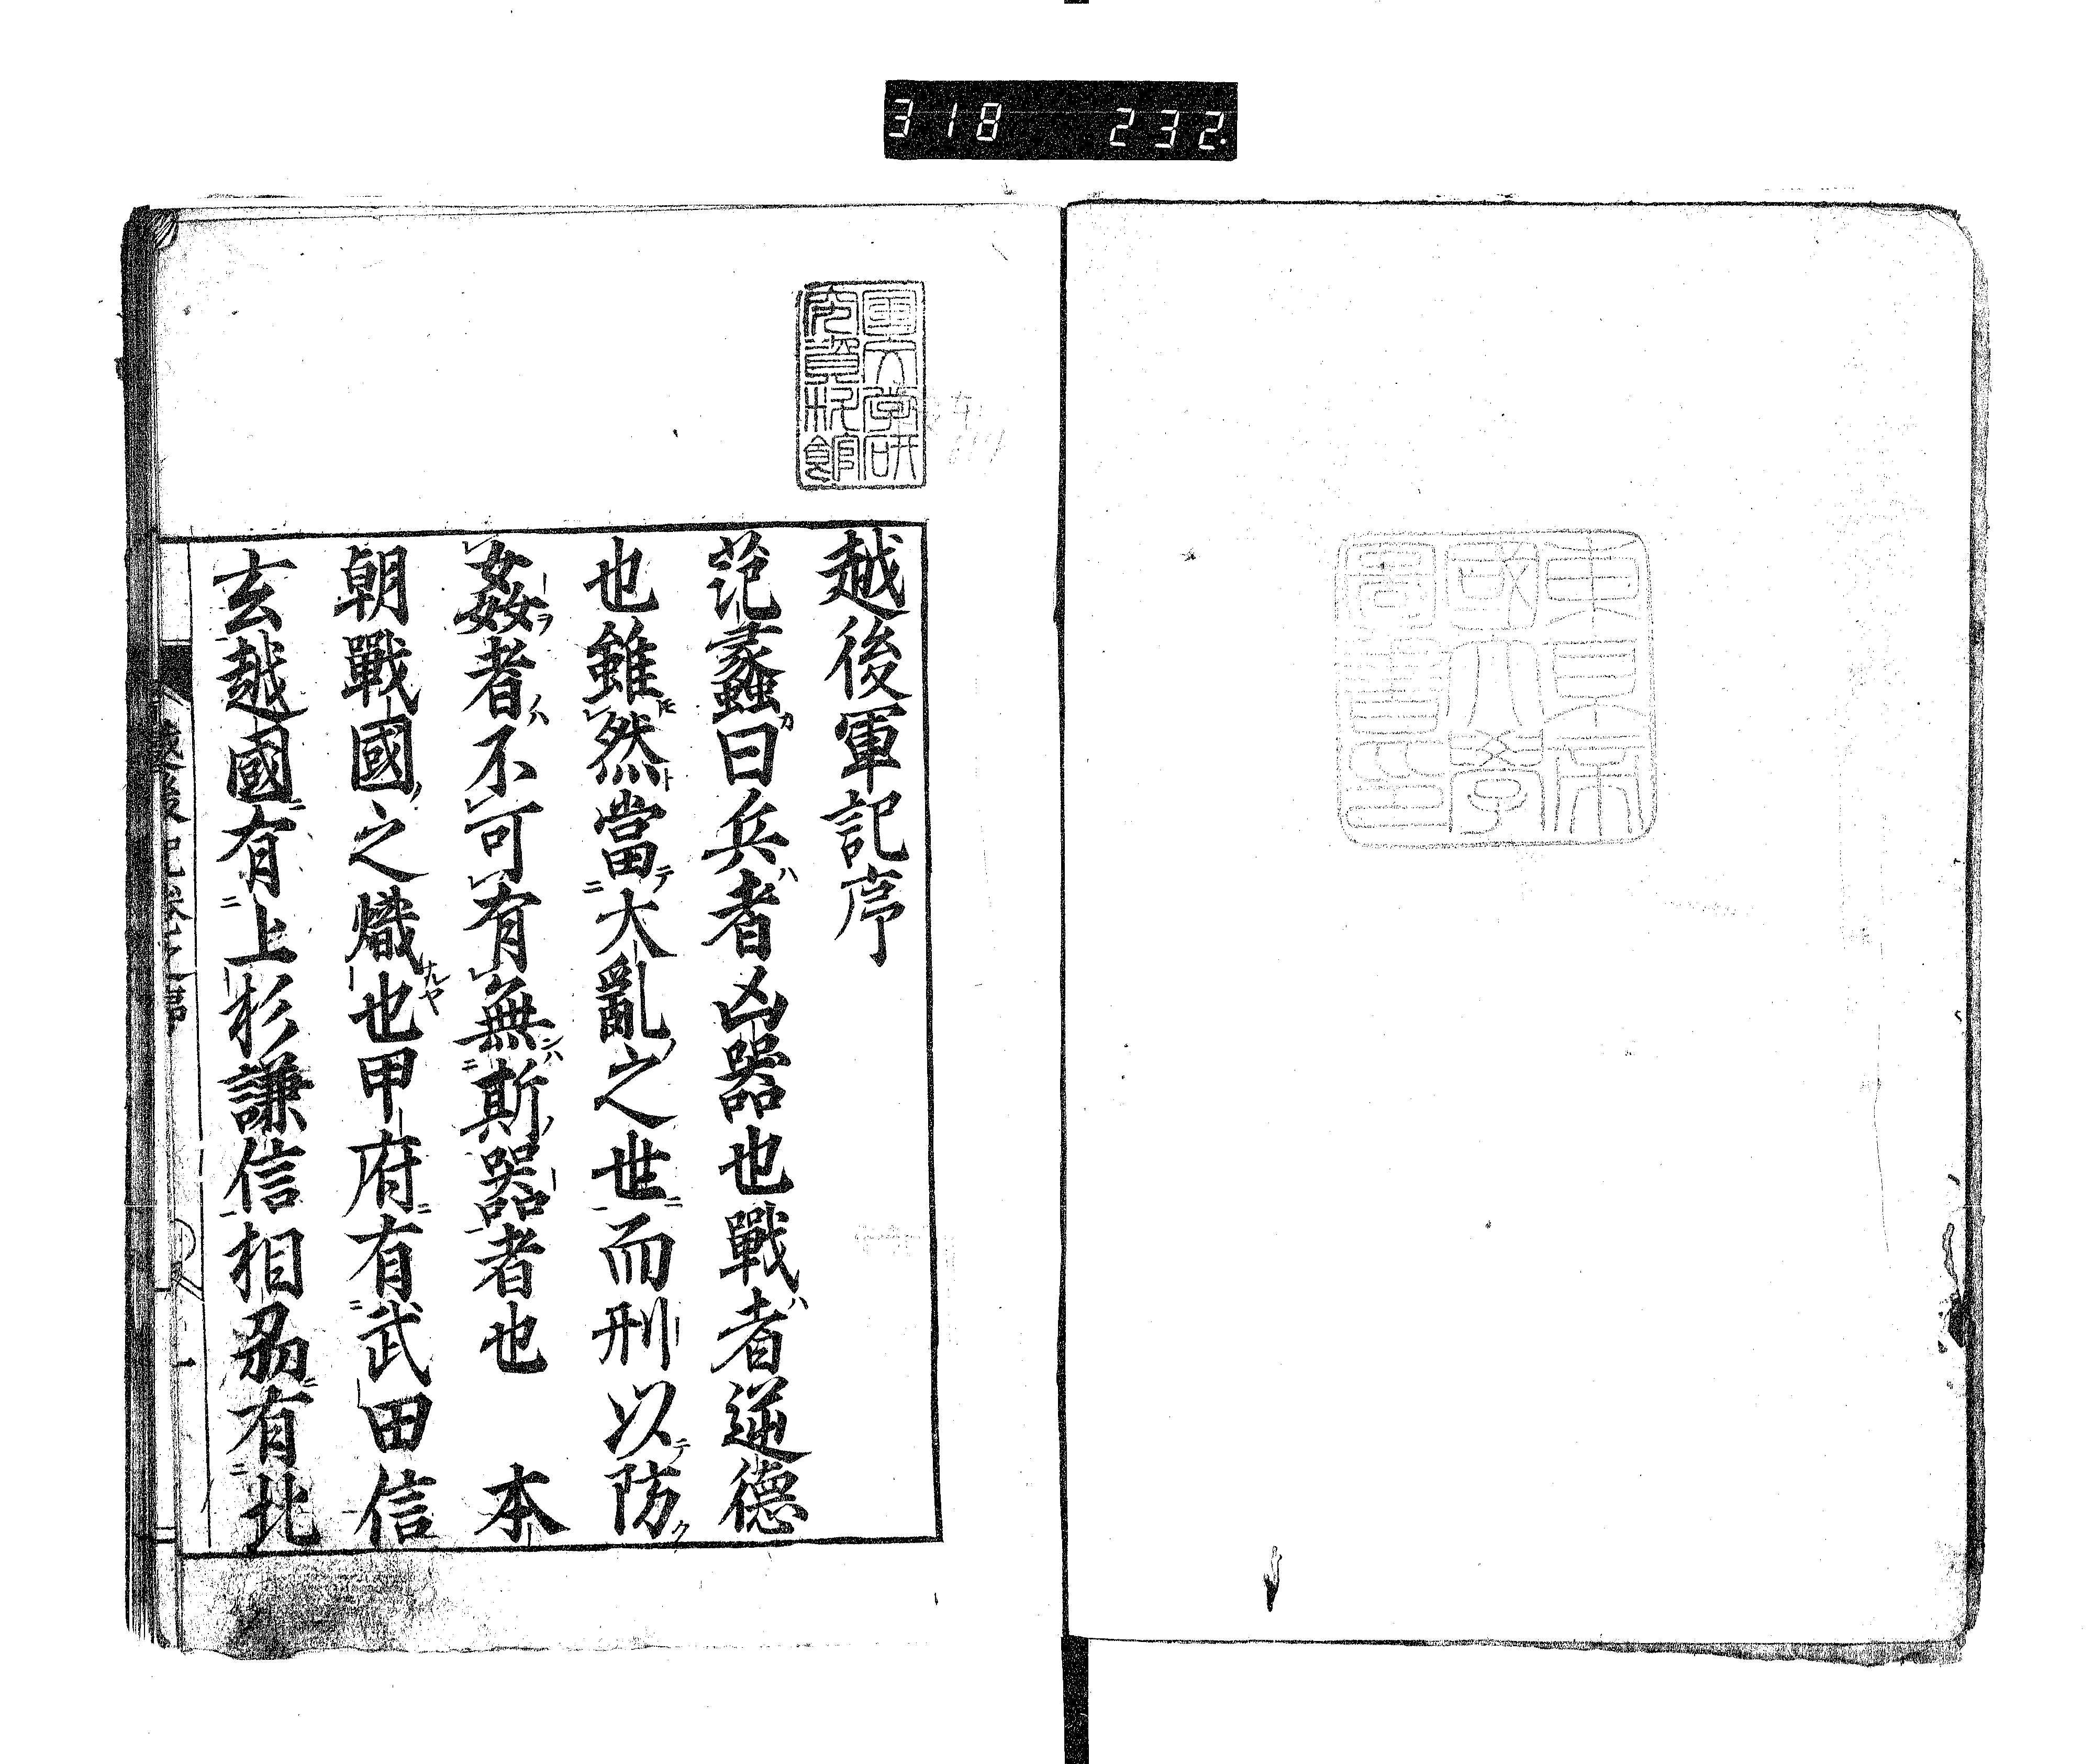 318 232
東京帝
國大學
圖書印
国文学研
究資料館
越後軍記序
范蠡曰兵者凶器也戰者逆德
也雖然當大亂之世而刑以防
姦者不可有無斯器者也 本
朝戰國之熾也甲府有武田信
玄越國有上杉謙信相刕有北